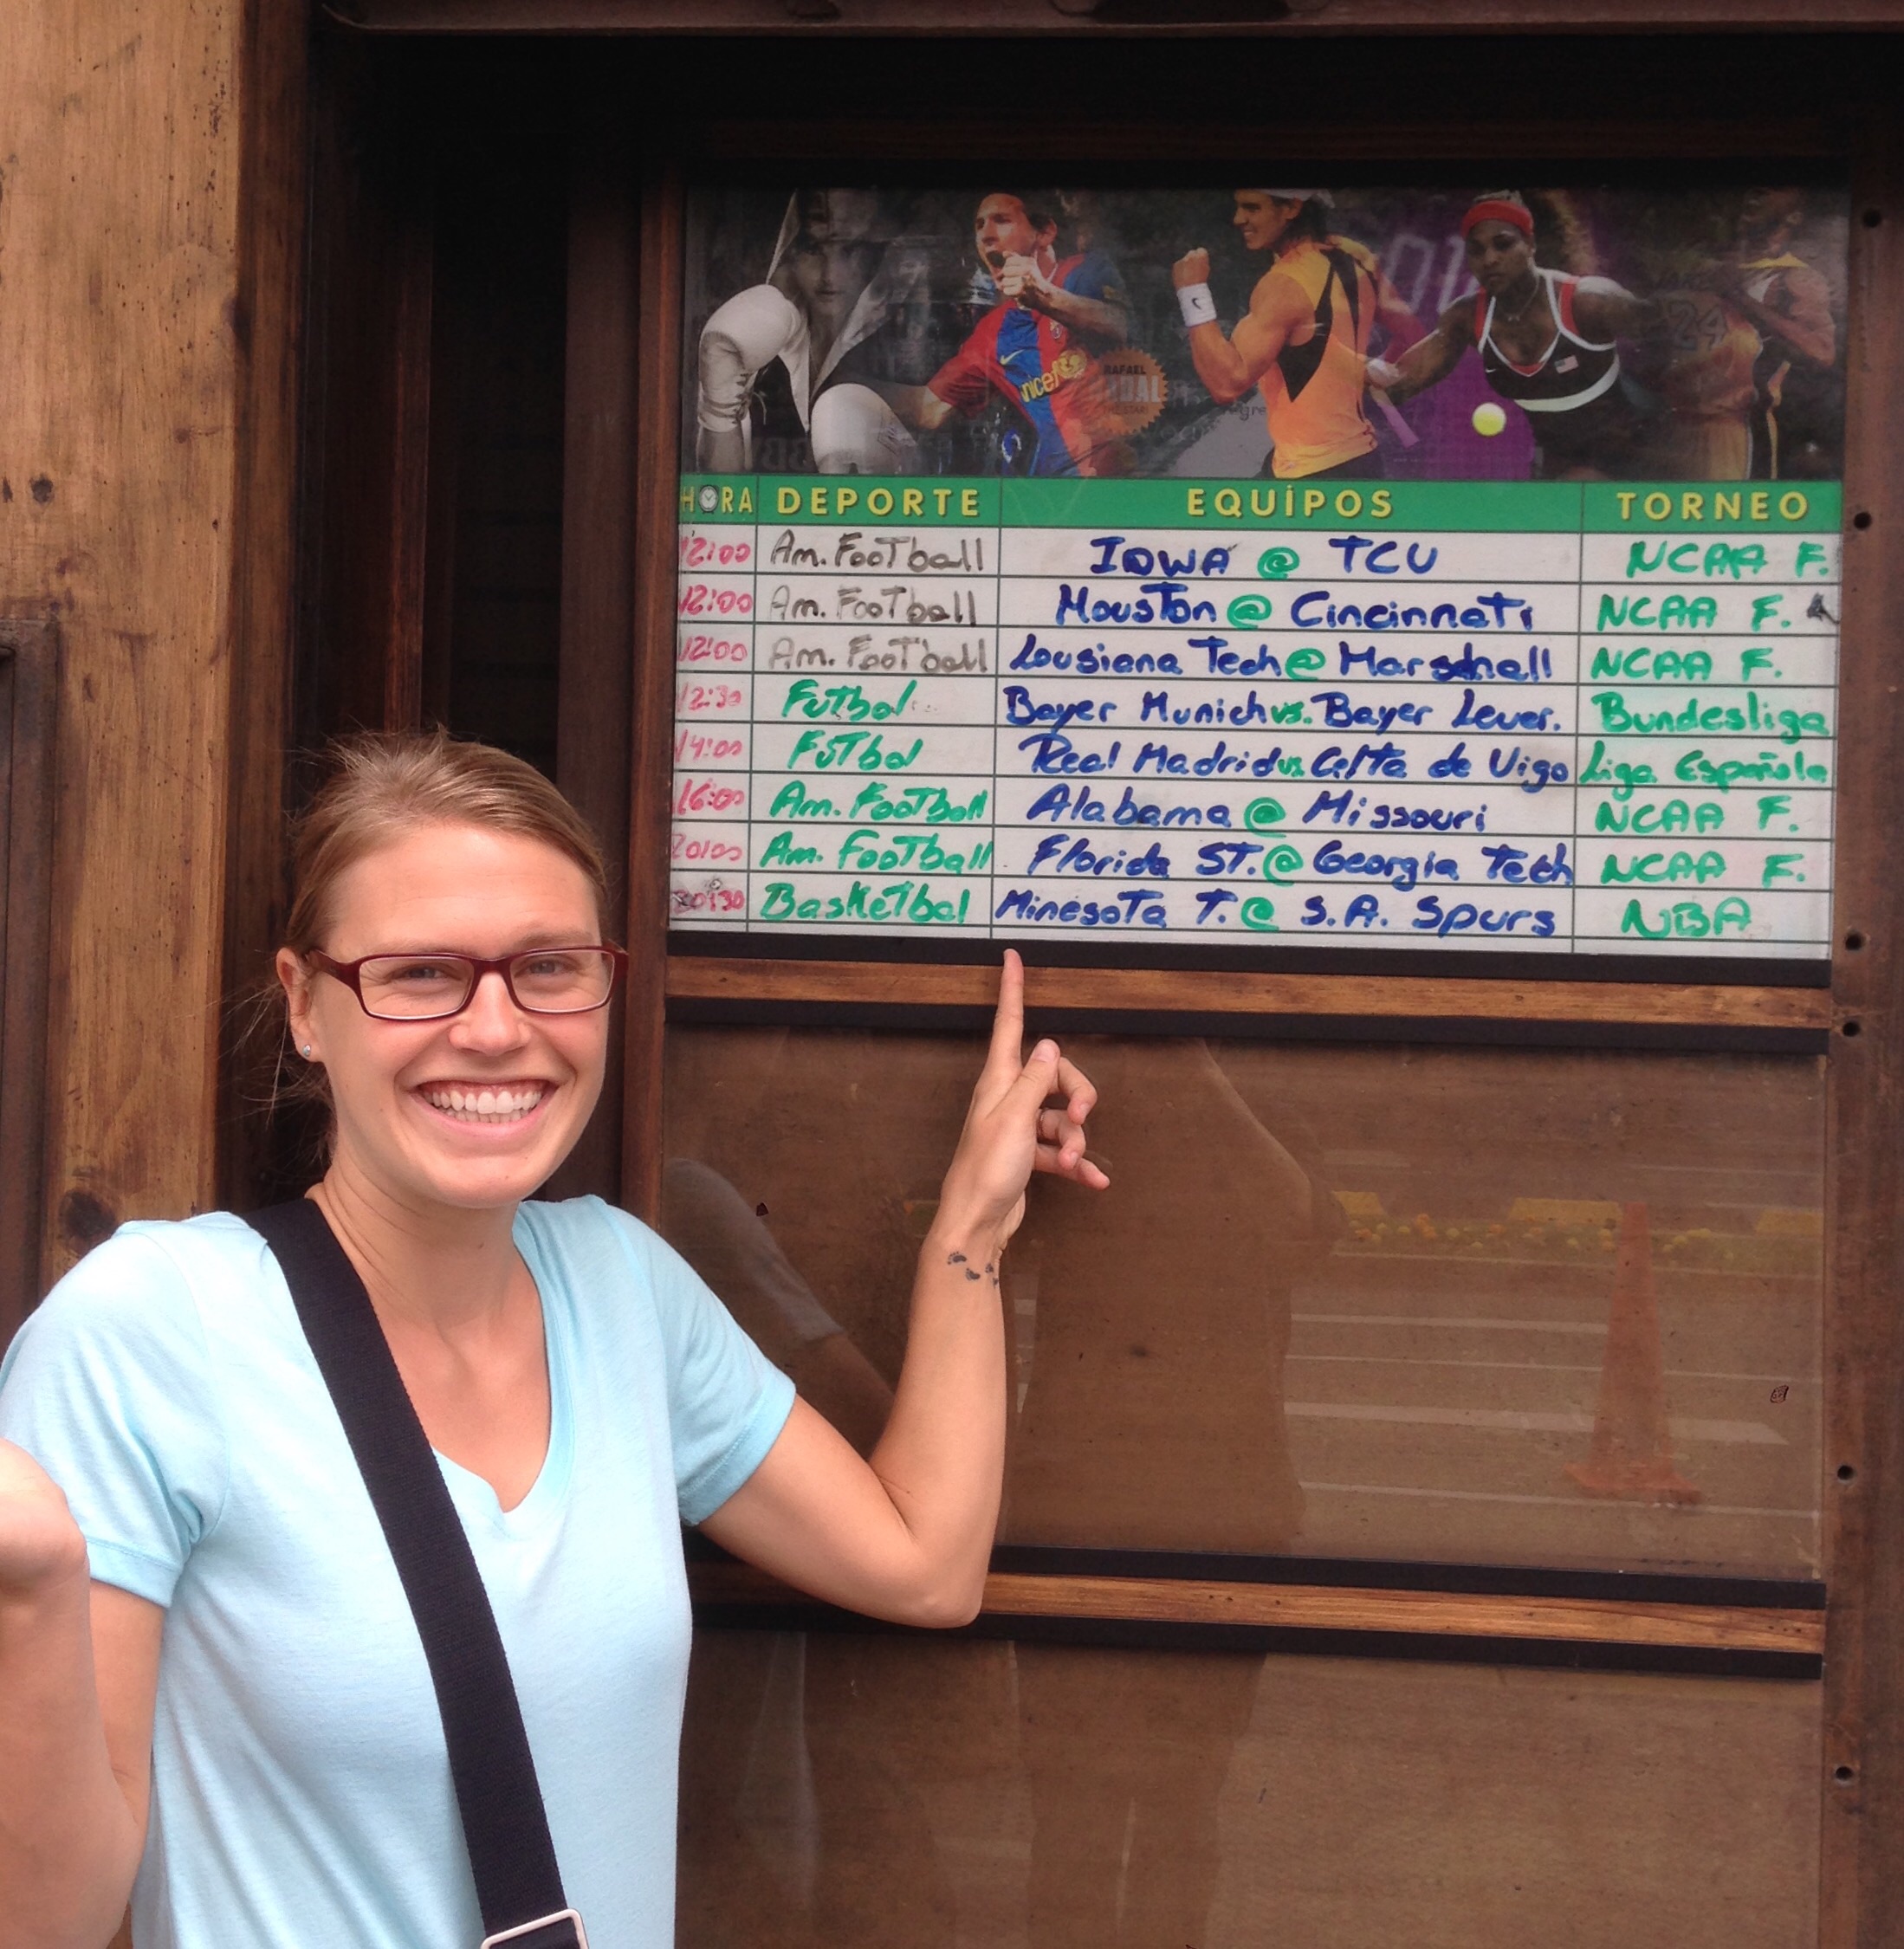 unicef
RAFAEL
NADAL
24
HORA DEPORTE EQUİPOS TORNEO
12:00 Am. FooTball IOWA @ TCU NCAA F.
12:00 Am. FooTball HousTon @ CincinnaTi NCAA F.
12:00 Am. FooTball Lousiana Tech @ Marschall NCAA F.
12:30 FuTbol Bayer Munich vs. Bayer Lever. Bundesliga
14:00 FuTbol Real Madrid vs CelTa de Vigo Liga Española
16:00 Am. FooTball Alabama @ Missouri NCAA F.
20:00 Am. FooTball Florida ST. @ Georgia Tech NCAA F.
20:30 BaskeTbal MinesoTa T. @ S.A. Spurs NBA